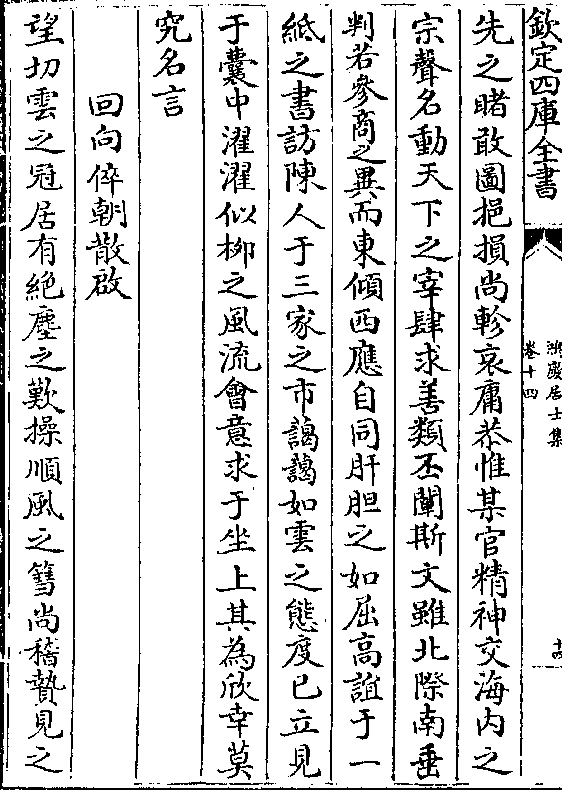 欽定四庫全書
鴻慶居士集
卷十四
十四
先之睹敢圖挹損尚軫哀庸恭惟某官精神交海内之
宗聲名動天下之宰肆求善類丕闡斯文雖北際南垂
判若參商之異而東傾西應自同肝胆之如屈高誼于一
紙之書訪陳人于三家之市藹藹如雲之態度已立見
于囊中濯濯似柳之風流會意求于坐上其為欣幸莫
究名言
回向倅朝散啟
望切雲之冠居有絶塵之歎操順風之篲尚稽贄見之